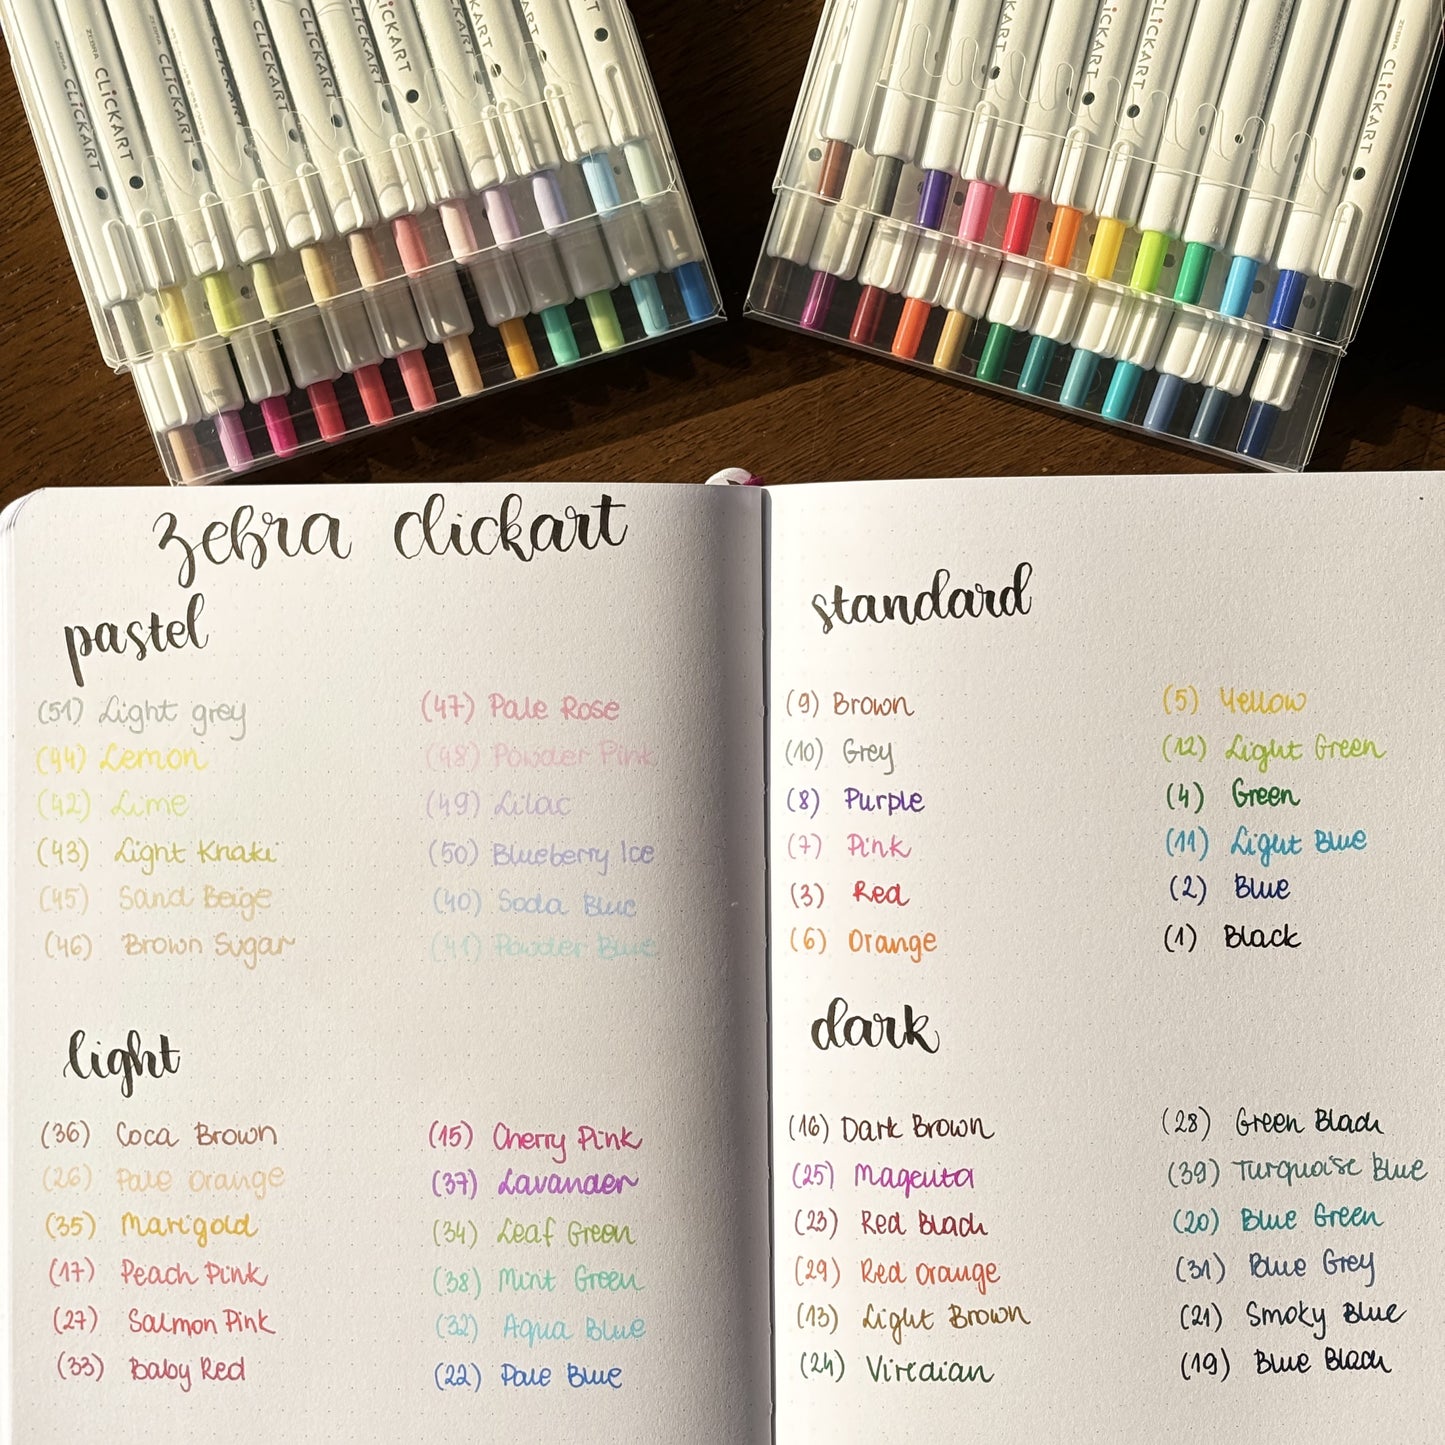 ZEBRA CLiCKART
ZEBRA CLiCKART
CLiCKART
CLiCKART
CLiCKART
CLiCKART
CLiCKART
CLiCKART
CLiCKART
CLiCKART
CLiCKART
CLiCKART
ZEBRA CLiCKART
zebra clickart
pastel
(51) Light grey
(44) Lemon
(42) Lime
(43) Light Khaki
(45) Sand Beige
(46) Brown Sugar
(47) Pale Rose
(48) Powder Pink
(49) Lilac
(50) Blueberry Ice
(40) Soda Blue
(41) Powder Blue
light
(36) Coca Brown
(26) Pale Orange
(35) Marigold
(17) Peach Pink
(27) Salmon Pink
(33) Baby Red
(15) Cherry Pink
(37) Lavander
(34) Leaf Green
(38) Mint Green
(32) Aqua Blue
(22) Pale Blue
standard
(9) Brown
(10) Grey
(8) Purple
(7) Pink
(3) Red
(6) Orange
(5) Yellow
(12) Light Green
(4) Green
(11) Light Blue
(2) Blue
(1) Black
dark
(16) Dark Brown
(25) Magenta
(23) Red Black
(29) Red Orange
(13) Light Brown
(24) Viridian
(28) Green Black
(39) Turquoise Blue
(20) Blue Green
(31) Blue Grey
(21) Smoky Blue
(19) Blue Black